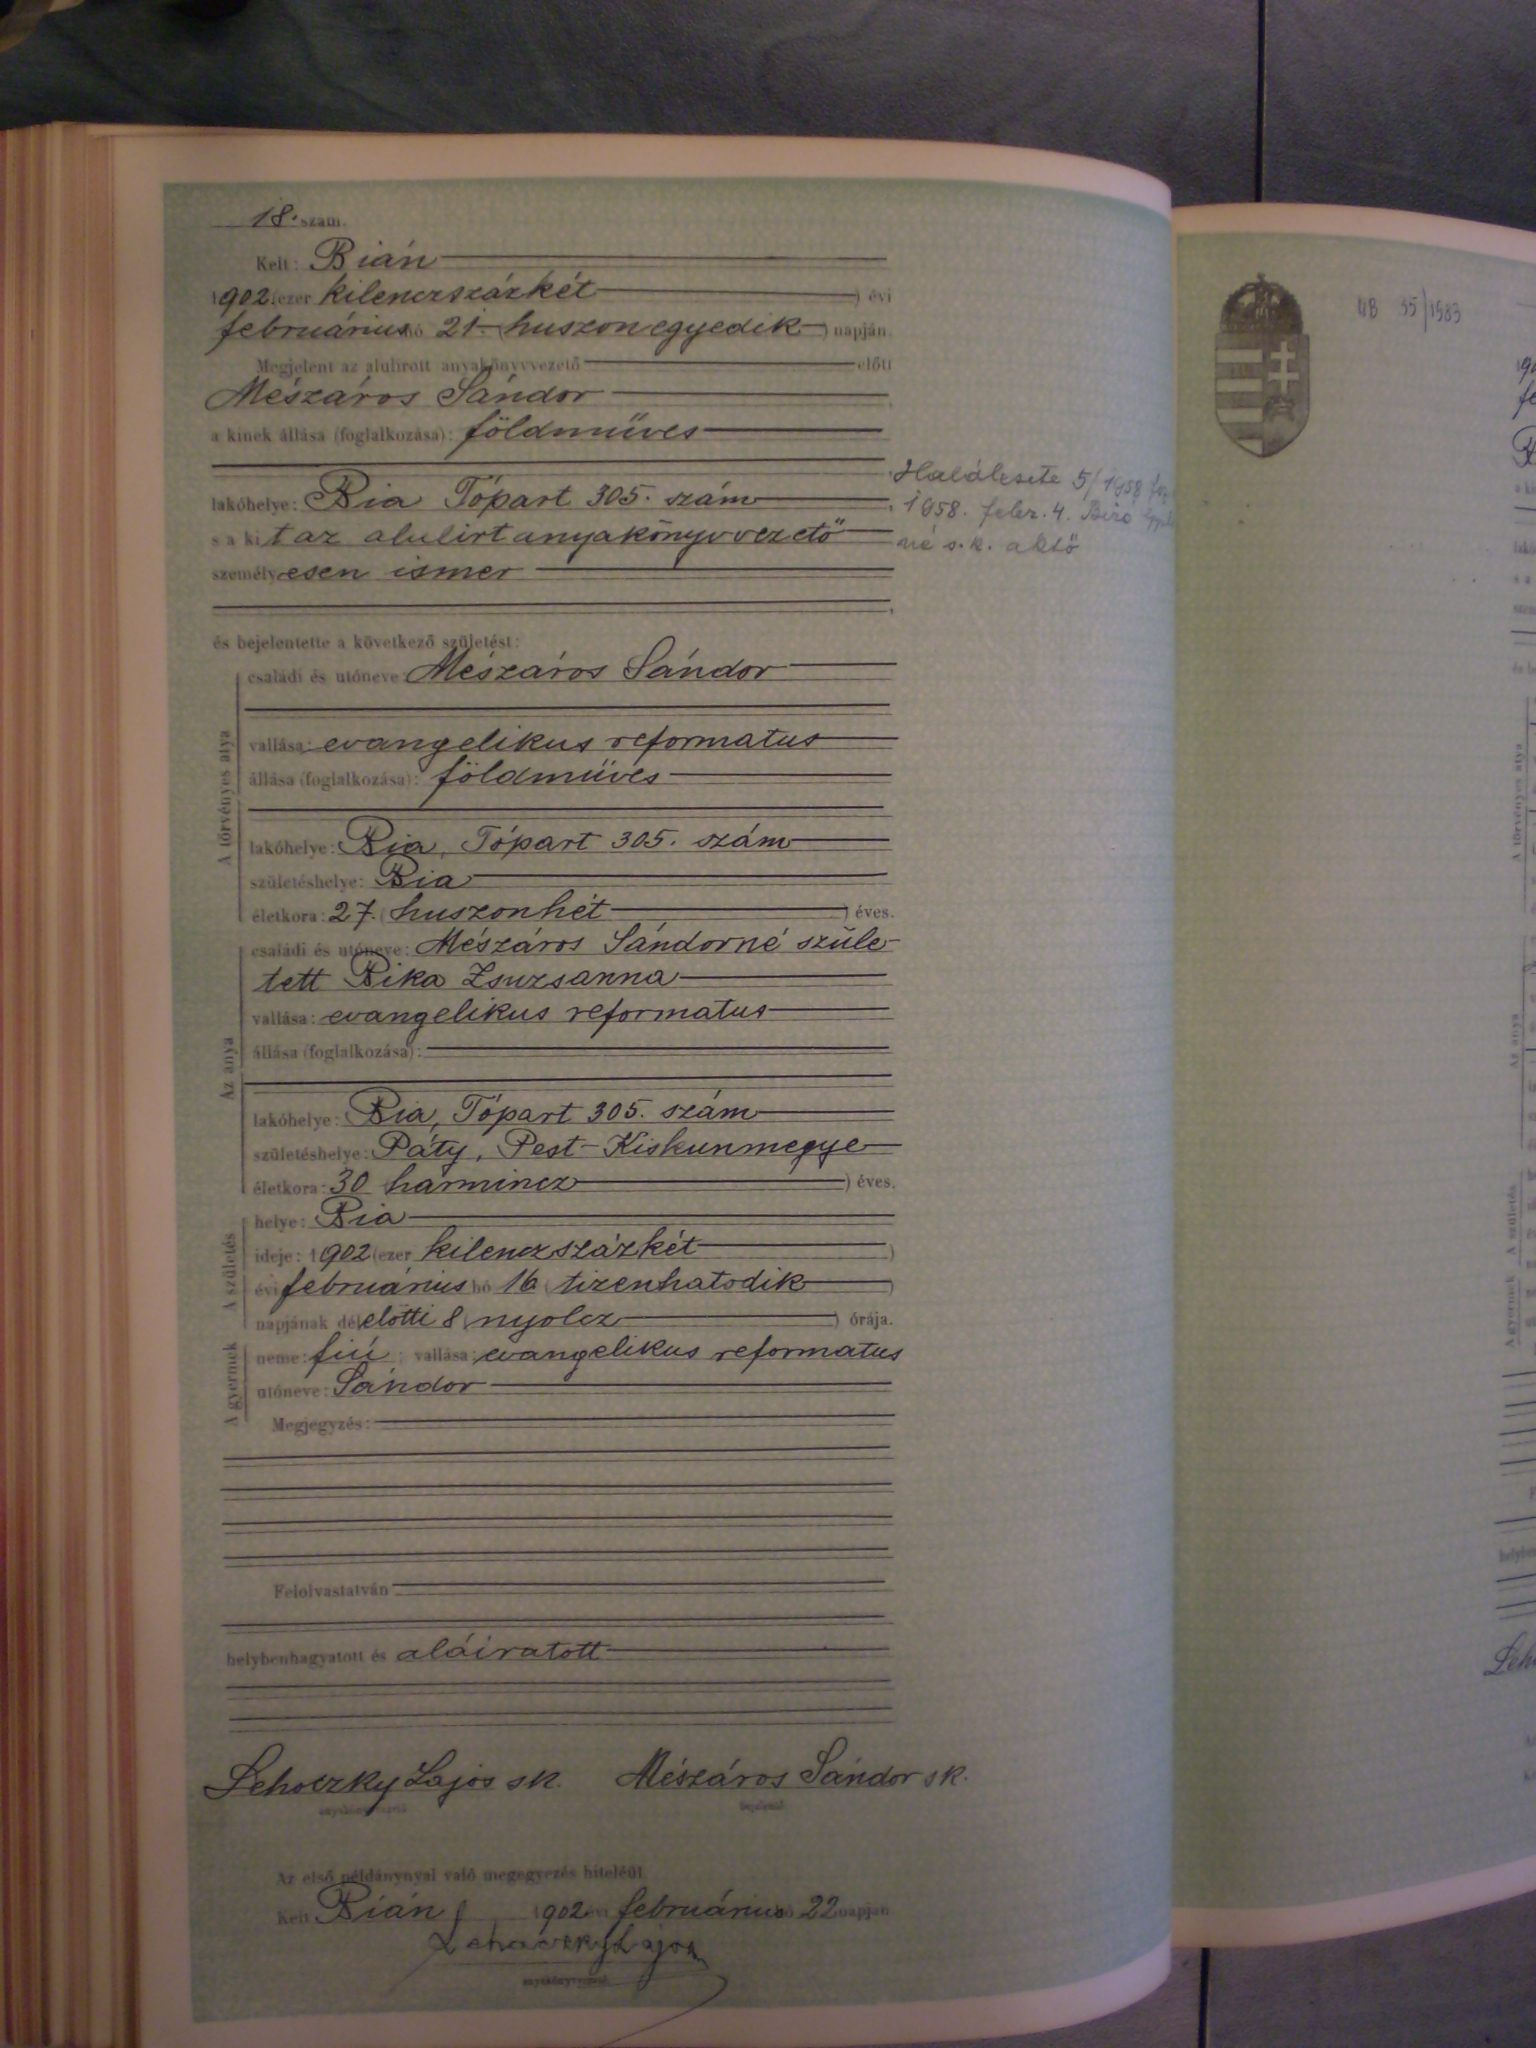 18. szám.
Kelt: Bián
1902 (ezer kilenczszázkét) évi
február​ius hó 21. (huszonegyedik) napján.
Megjelent az alulirott anyakönyvvezető előtt
Mészáros Sándor
a kinek állása (foglalkozása): földmüves
lakóhelye: Bia Tópart 305. szám
s a kit az alulirt anyakönyvvezető
személyesen ismer
és bejelentette a következő születést:
A törvényes atya
családi és utóneve: Mészáros Sándor
vallása: evangelikus reformatus
állása (foglalkozása): földmüves
lakóhelye: Bia, Tópart 305. szám
születéshelye: Bia
életkora: 27. (huszonhét) éves.
Az anya
családi és utóneve: Mészáros Sándorné szüle-
tett Bika Zsuzsanna
vallása: evangelikus reformatus
állása (foglalkozása):
lakóhelye: Bia, Tópart 305. szám
születéshelye: Páty, Pest-Kiskunmegye
életkora: 30 (harmincz) éves.
A születés
helye: Bia
ideje: 1902 (ezer kilenczszázkét)
évi februárius hó 16 (tizenhatodik)
napjának délelőtti 8 (nyolcz) órája.
A gyermek
neme: fiú; vallása: evangelikus reformatus
utóneve: Sándor
Megjegyzés:
Felolvastatván
helybenhagyatott és aláiratott
Lehoczky Lajos sk. Mészáros Sándor sk.
anyakönyvvezető bejelentő
Az első példánynyal való megegyezés hiteléül.
Kelt Bián 1902 évi februárius hó 22 napján
Lehoczky Lajos
anyakönyvvezető
Halálesete 5/1958
1958. febr. 4. Biró
né s.k. aktő
UB 35/1983